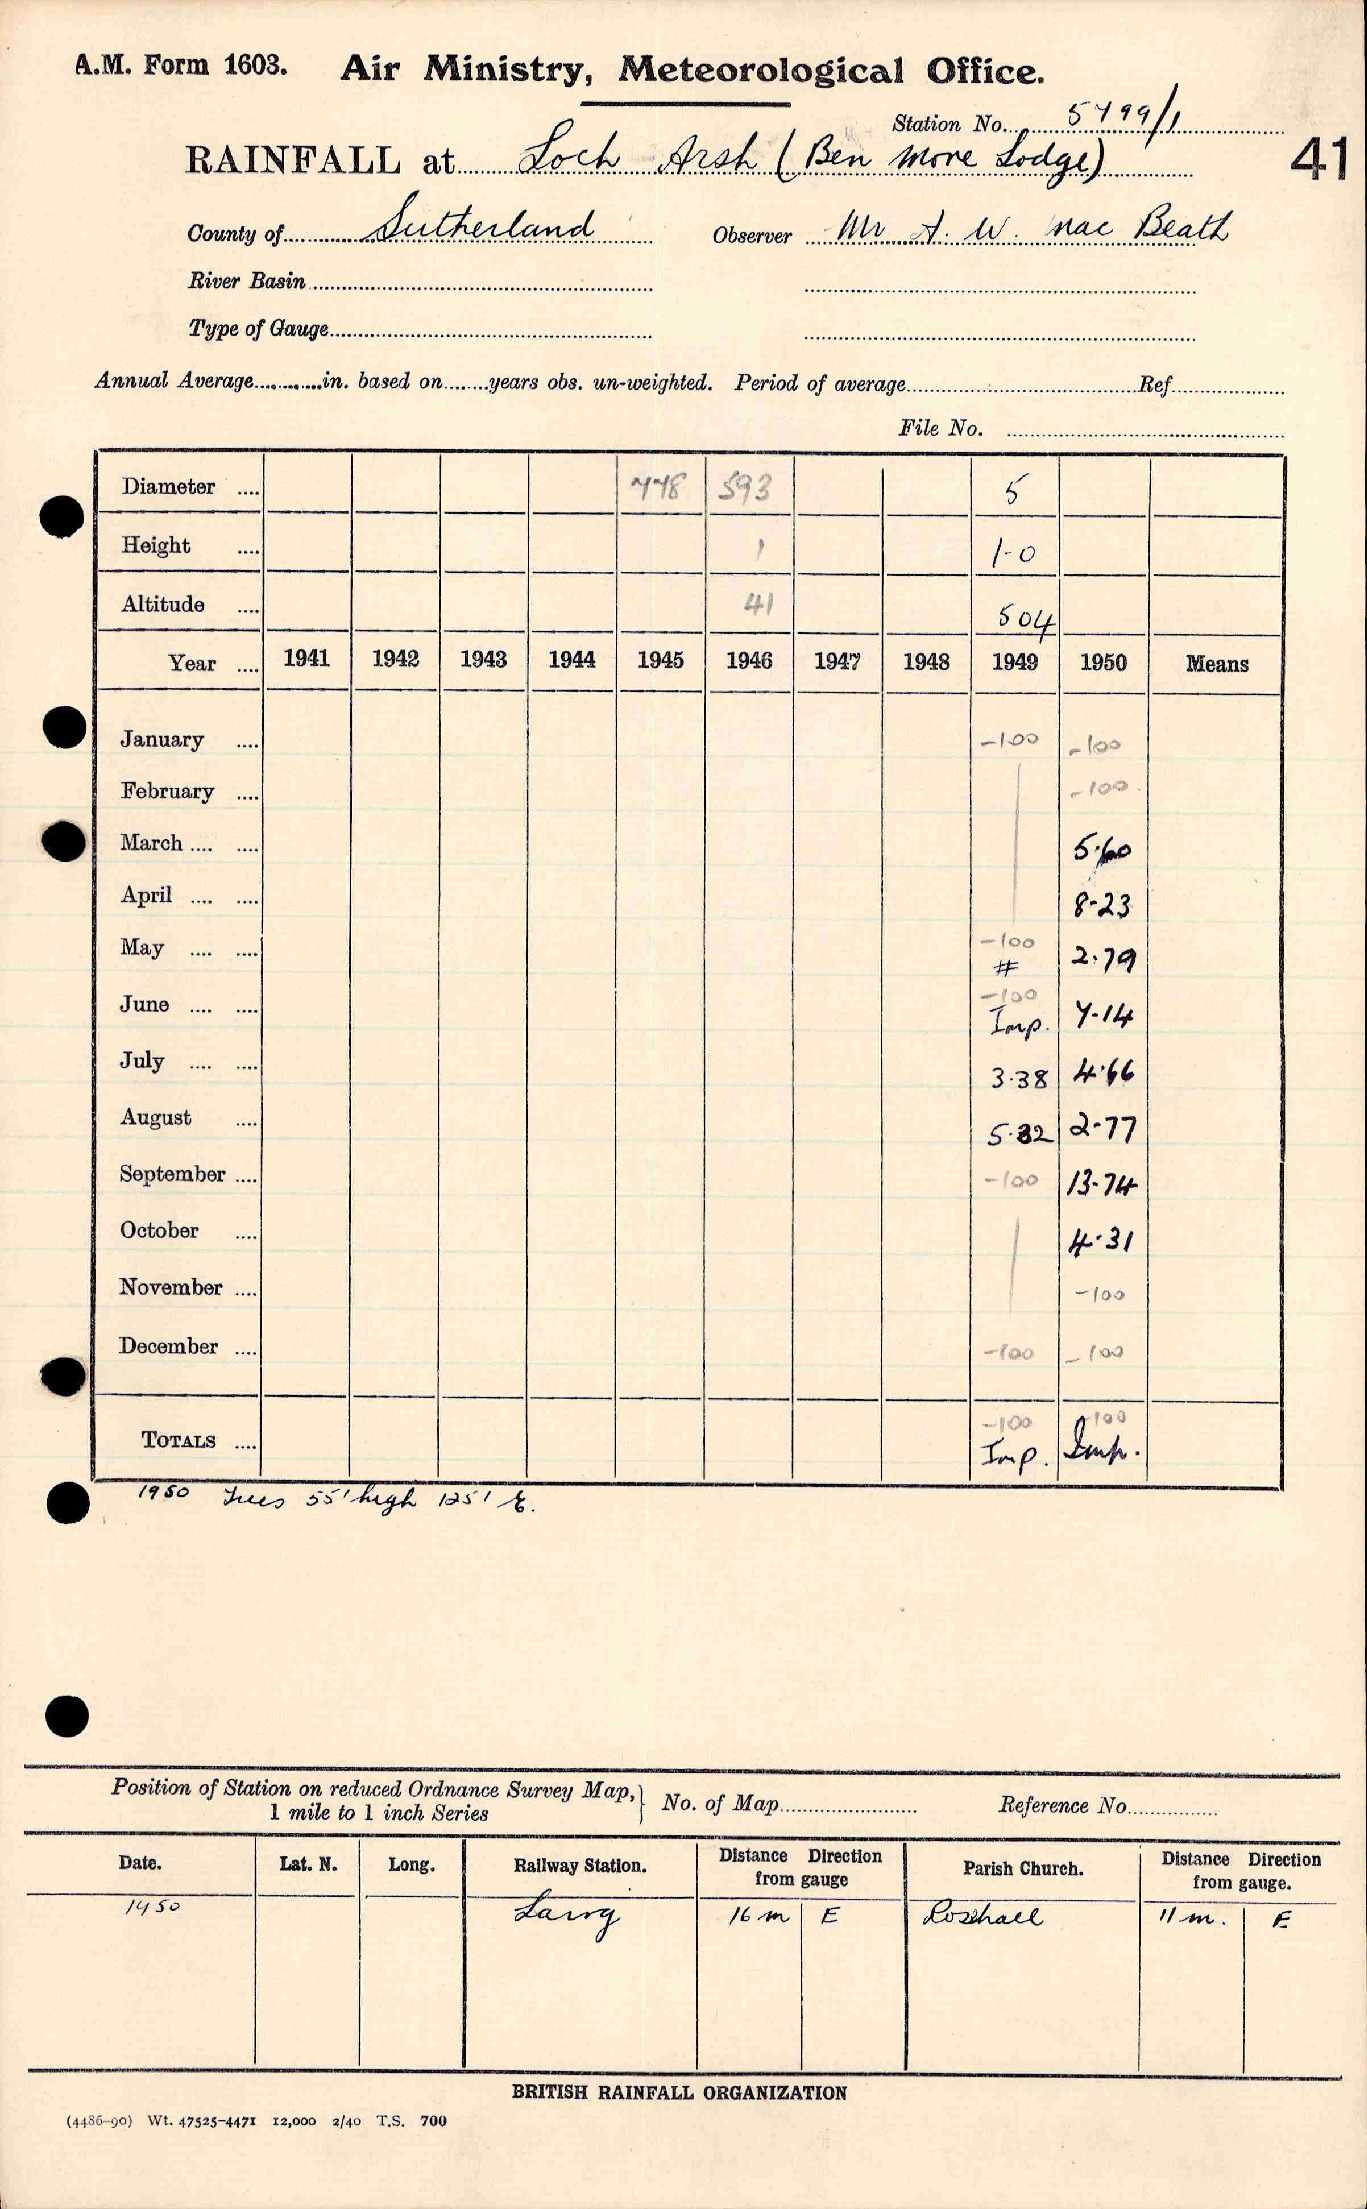 A.M. Form 1603. Air Ministry, Meteorological Office.
Station No. 5799/1
RAINFALL at Loch Arsh (Ben More Lodge) 41
County of Sutherland Observer Mr A. W. Mac Beath
River Basin
Type of Gauge
Annual Average in. based on years obs. un-weighted. Period of average Ref
File No.
Diameter 778 593 5
Height 1 1-0
Altitude 41 504
Year 1941 1942 1943 1944 1945 1946 1947 1948 1949 1950 Means
January -100 -100
February -100
March 5.60
April 8-23
May -100 # 2.79
June -100 Imp. 7-14
July 3.38 4.66
August 5.82 2-77
September -100 13-74
October 4.31
November -100
December -100 -100
TOTALS -100 Imp. -100 Imp.
1950 Trees 55' high 125' E.
Position of Station on reduced Ordnance Survey Map, 1 mile to 1 inch Series } No. of Map Reference No.
Date. Lat. N. Long. Railway Station. Distance Direction from gauge Parish Church. Distance Direction from gauge.
1950 Lairg 16 m E Rosehall 11 m. E
BRITISH RAINFALL ORGANIZATION
(4486-90) Wt. 47525-4471 12,000 2/40 T.S. 700